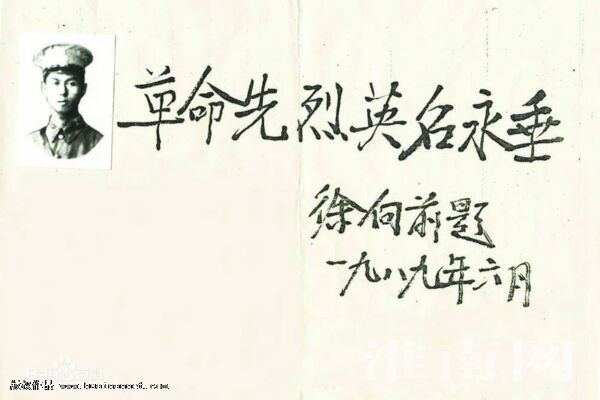 革命先烈英名永垂
徐向前题
一九八九年六月
Bai百科
淮南网